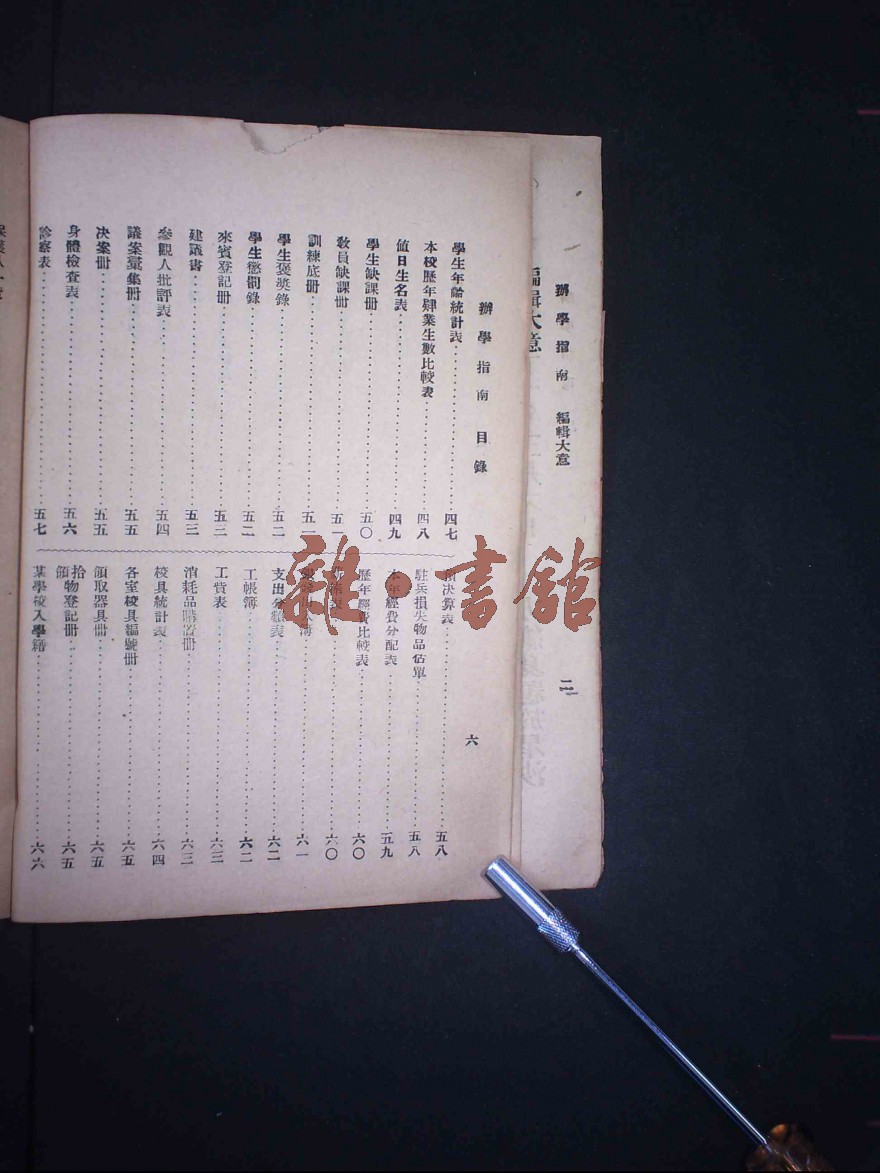 辦學指南 編輯大意
二
編輯大意
辦學指南 目錄
六
學生年齡統計表 四七
本校歷年肄業生數比較表 四八
値日生名表 四九
學生缺課冊 五〇
敎員缺課冊 五一
訓練底冊 五一
學生褒獎錄 五二
學生懲罰錄 五二
來賓登記冊 五三
建議書 五三
參觀人批評表 五四
議案彙集冊 五五
决案冊 五五
身體檢查表 五六
診察表 五七
決算表 五八
駐兵損失物品估單 五八
本年經費分配表 五九
歷年經費比較表 六〇
六〇
六一
支出分類表 六二
工帳簿 六二
工賃表 六三
消耗品購置冊 六三
校具統計表 六四
各室校具編號冊 六五
領取器具冊 六五
拾物登記冊 六五
領
某學校入學籍 六六
雜·書館